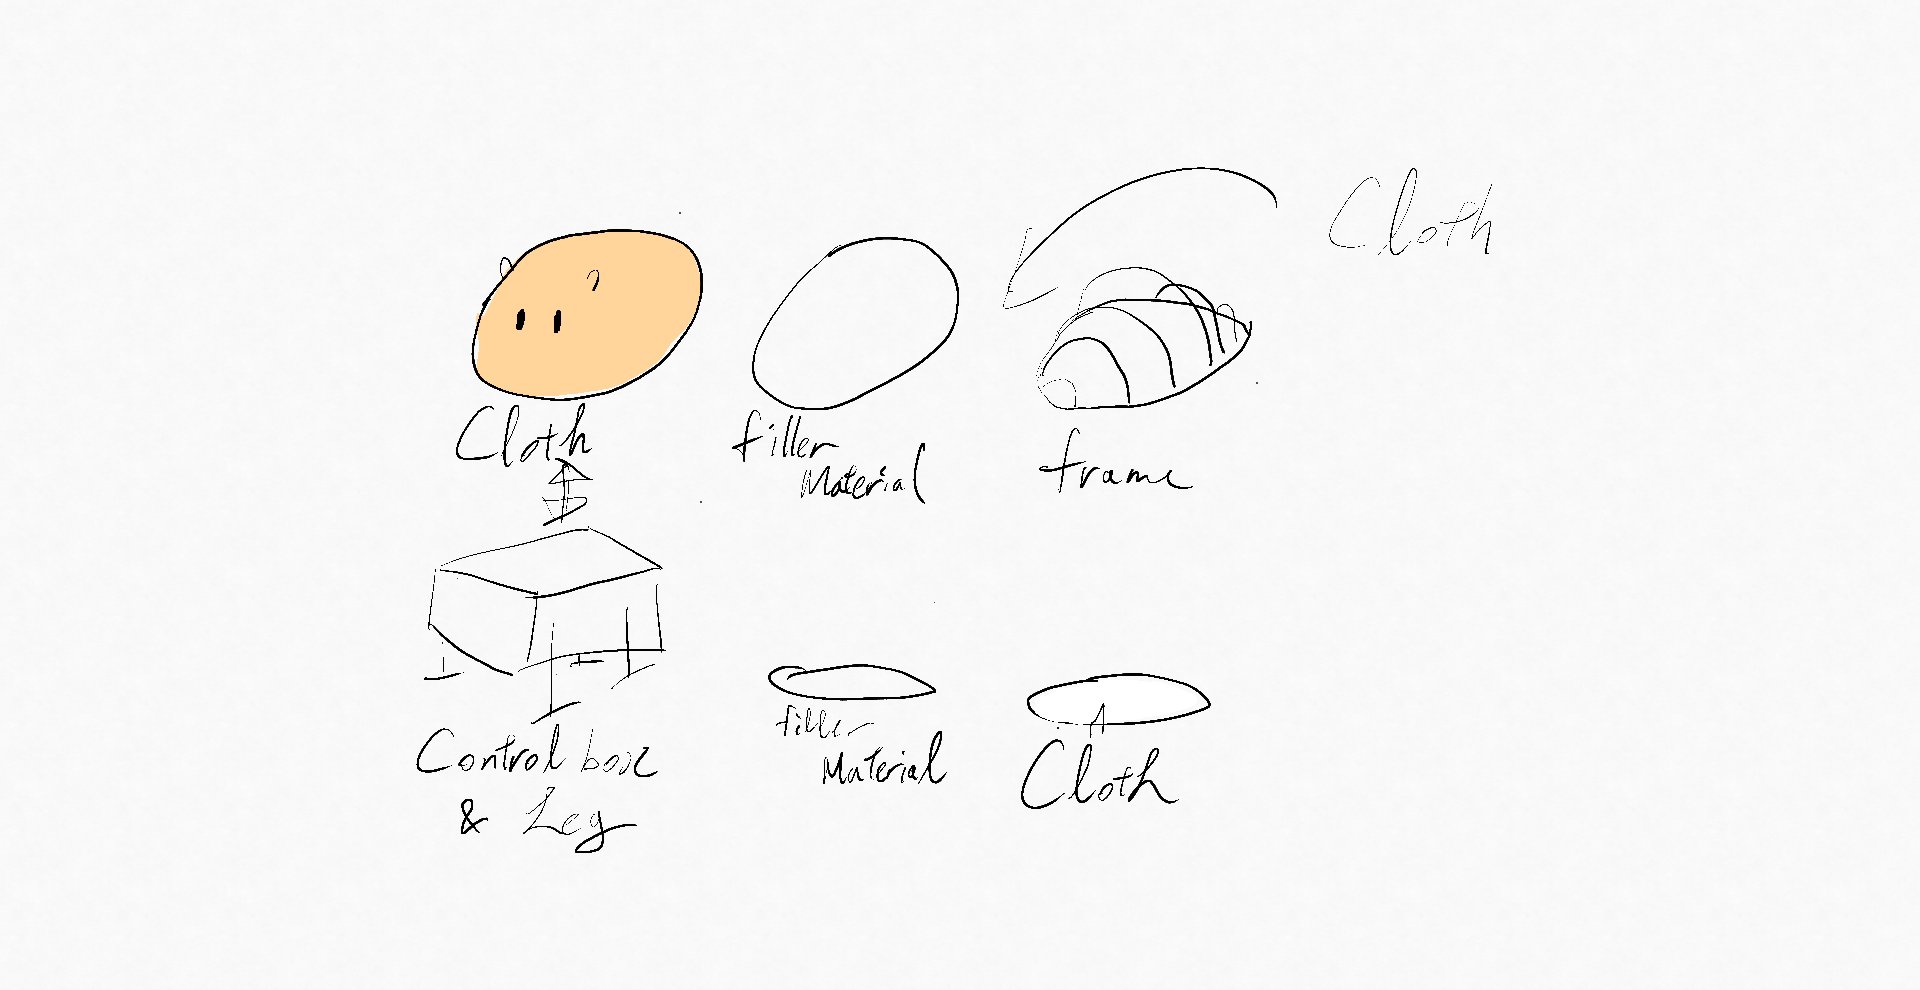 Cloth
Cloth
filler
Material
frame
Control box
& Leg
filler
Material
Cloth